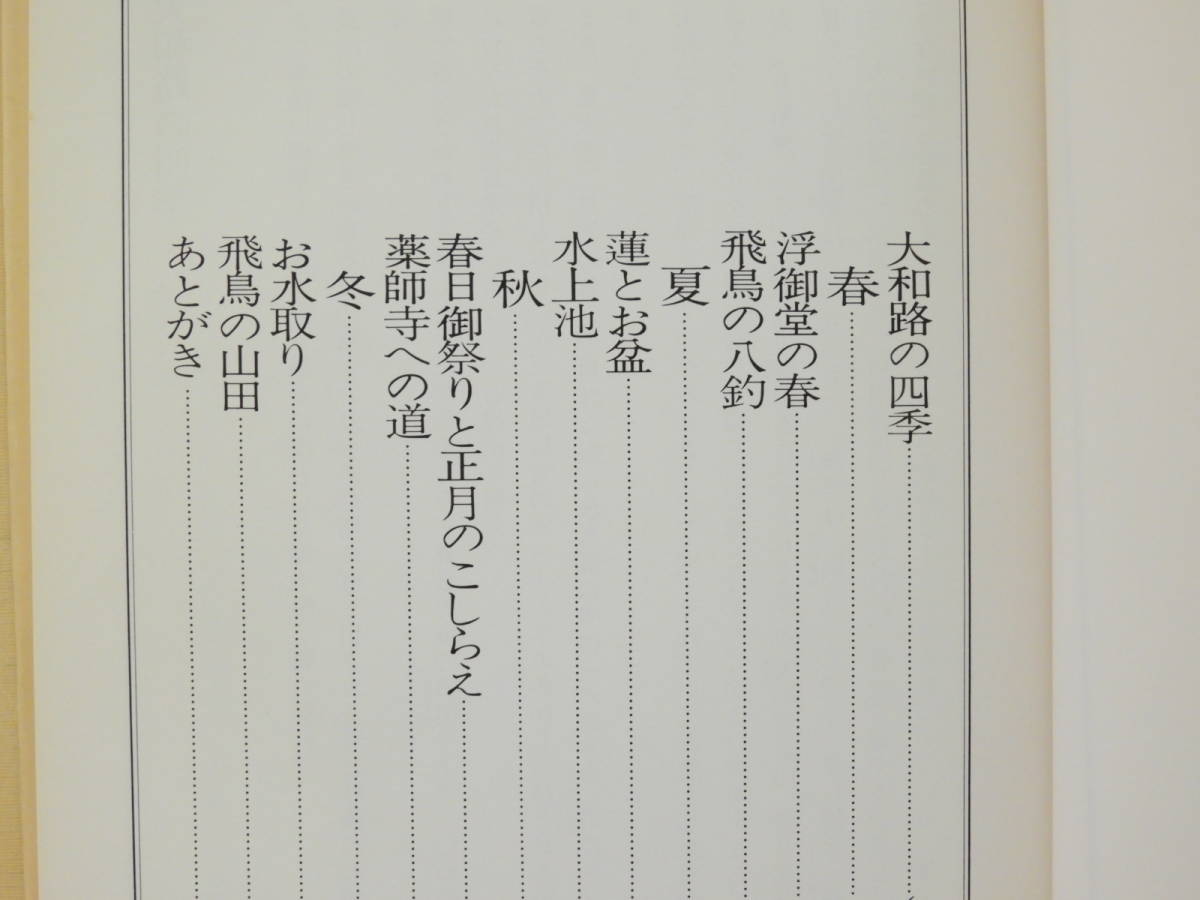 大和路の四季
春
浮御堂の春
飛鳥の八釣
夏
蓮とお盆
水上池
秋
春日御祭りと正月のこしらえ
薬師寺への道
冬
お水取り
飛鳥の山田
あとがき